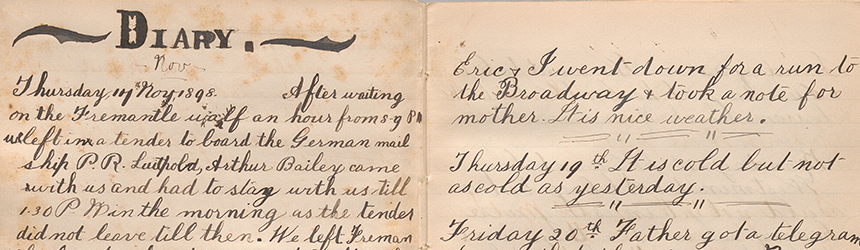 DIARY.
Nov
Thursday, 17 Nov 1898. After waiting
on the Fremantle half an hour from 8-9
we left in a tender to board the German mail
ship P. R. Luitpold, Arthur Bailey came
with us and had to stay with us till
1.30 P M in the morning as the tender
did not leave till then. We left Freman
Eric & I went down for a run to
the Broadway & took a note for
mother. It is nice weather.
Thursday 19th It is cold but not
as cold as yesterday.
Friday 20th Father got a telegram